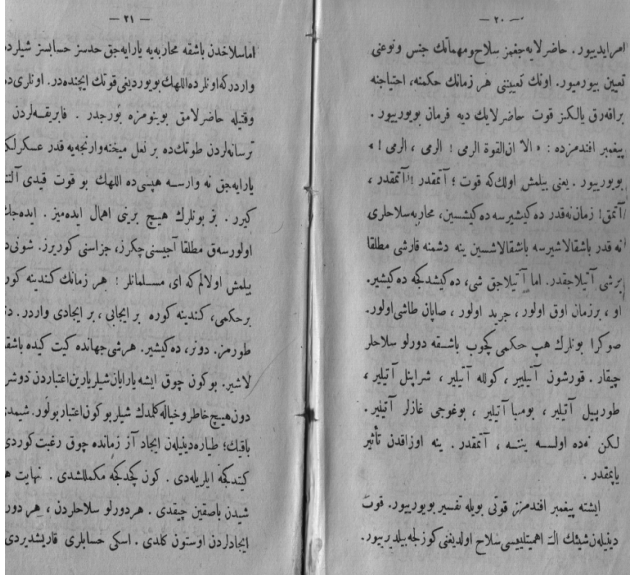 — ٢٠ —
امر ایدییور . حاضرلایه جغمز سلاح و مهماتك جنس و نوعنی
تعیین بیورمیور . اونك تعییننی هر زمانك حكمنه، احتیاجنه
براقه رق یالكز قوت حاضرلایك دیه فرمان بویورییور .
پیغمبر افندمزده : « الا ان القوة الرمی ! الرمی ، الرمی ! »
بویورییور . یعنی بیلمش اولك كه قوت ؛ آتمقدر ! آتمقدر ،
آتمق! زمان نه قدر ده كیشیرسه ده كیشسین، محاربه سلاحلری
نه قدر باشقالاشیرسه باشقالاشسین ینه دشمنه قارشی مطلقا
برشی آتیلاجقدر. اما آتیلاجق شی، ده كیشدكجه ده كیشیر.
او ، برزمان اوق اولور ، جرید اولور ، صاپان طاشی اولور.
صوكرا بونلرك هپ حكمی كچوب باشقه دورلو سلاحلر
چیقار . قورشون آتیلییر ، كولله آتیلیر ، شراپنل آتیلیر ،
طورپیل آتیلیر ، بومبا آتیلیر ، بوغوجی غازلر آتیلیر .
لكن نه ده اولسه ینه ، آتمقدر . ینه اوزاقدن تأثیر
یاپمقدر .
ایشته پیغمبر افندمزز قوتی بویله تفسیر بویورییور. قوت
دینیلن شیئك اك اهمیتلیسی سلاح اولدیغنی كوزلجه بیلدیرییور.
— ٢١ —
اما سلاحدن باشقه محاربه یه یارایه جق حدسز حسابسز شیلرده
واردر كه اونلرده اللهك بویوردیغی قوتك ایچنده در. اونلری ده
وقتیله حاضرلامق بوینومزه بورجدر . فابریقه لردن
ترسانه لردن طوتك ده بر نعل میخنه وارنجه یه قدر عسكرلكه
یارایه جق نه وارسه هپسی ده اللهك بو قوت قیدی آلتنه
كیرر . بز بونلرك هیچ برینی اهمال ایده میز . ایده جك
اولورسه ق مطلقا آجیسنی چكرز، جزاسنی كوریرز. شونی ده
بیلمش اولالم كه ای، مسلمانلر ! هر زمانك كندینه كوره
برحكمی، كندینه كوره بر ایجابی ، بر ایجادی واردر.
طورمز. دونر، ده كیشیر. هرشی جهانده كیت كیده باشقه
لاشیر. بوكون چوق ایشه یارایان شیلر یارین اعتباردن دوشر
دون هیچ خاطر و خیاله كلمدك شیلر بوكون اعتبار بولور. شیمدی
باقیك؛ طیاره دینیلن ایجاد آز زمانده چوق رغبت كوردی
كیتدكجه ایلریله دی . كون كچدكجه مكمللشدی . نهایت هر
شیدن باصقین چیقدی . هر دورلو سلاحلردن ، هر دورلو
ایجادلردن اوستون كلدی . اسكی حسابلری قاریشدیردی